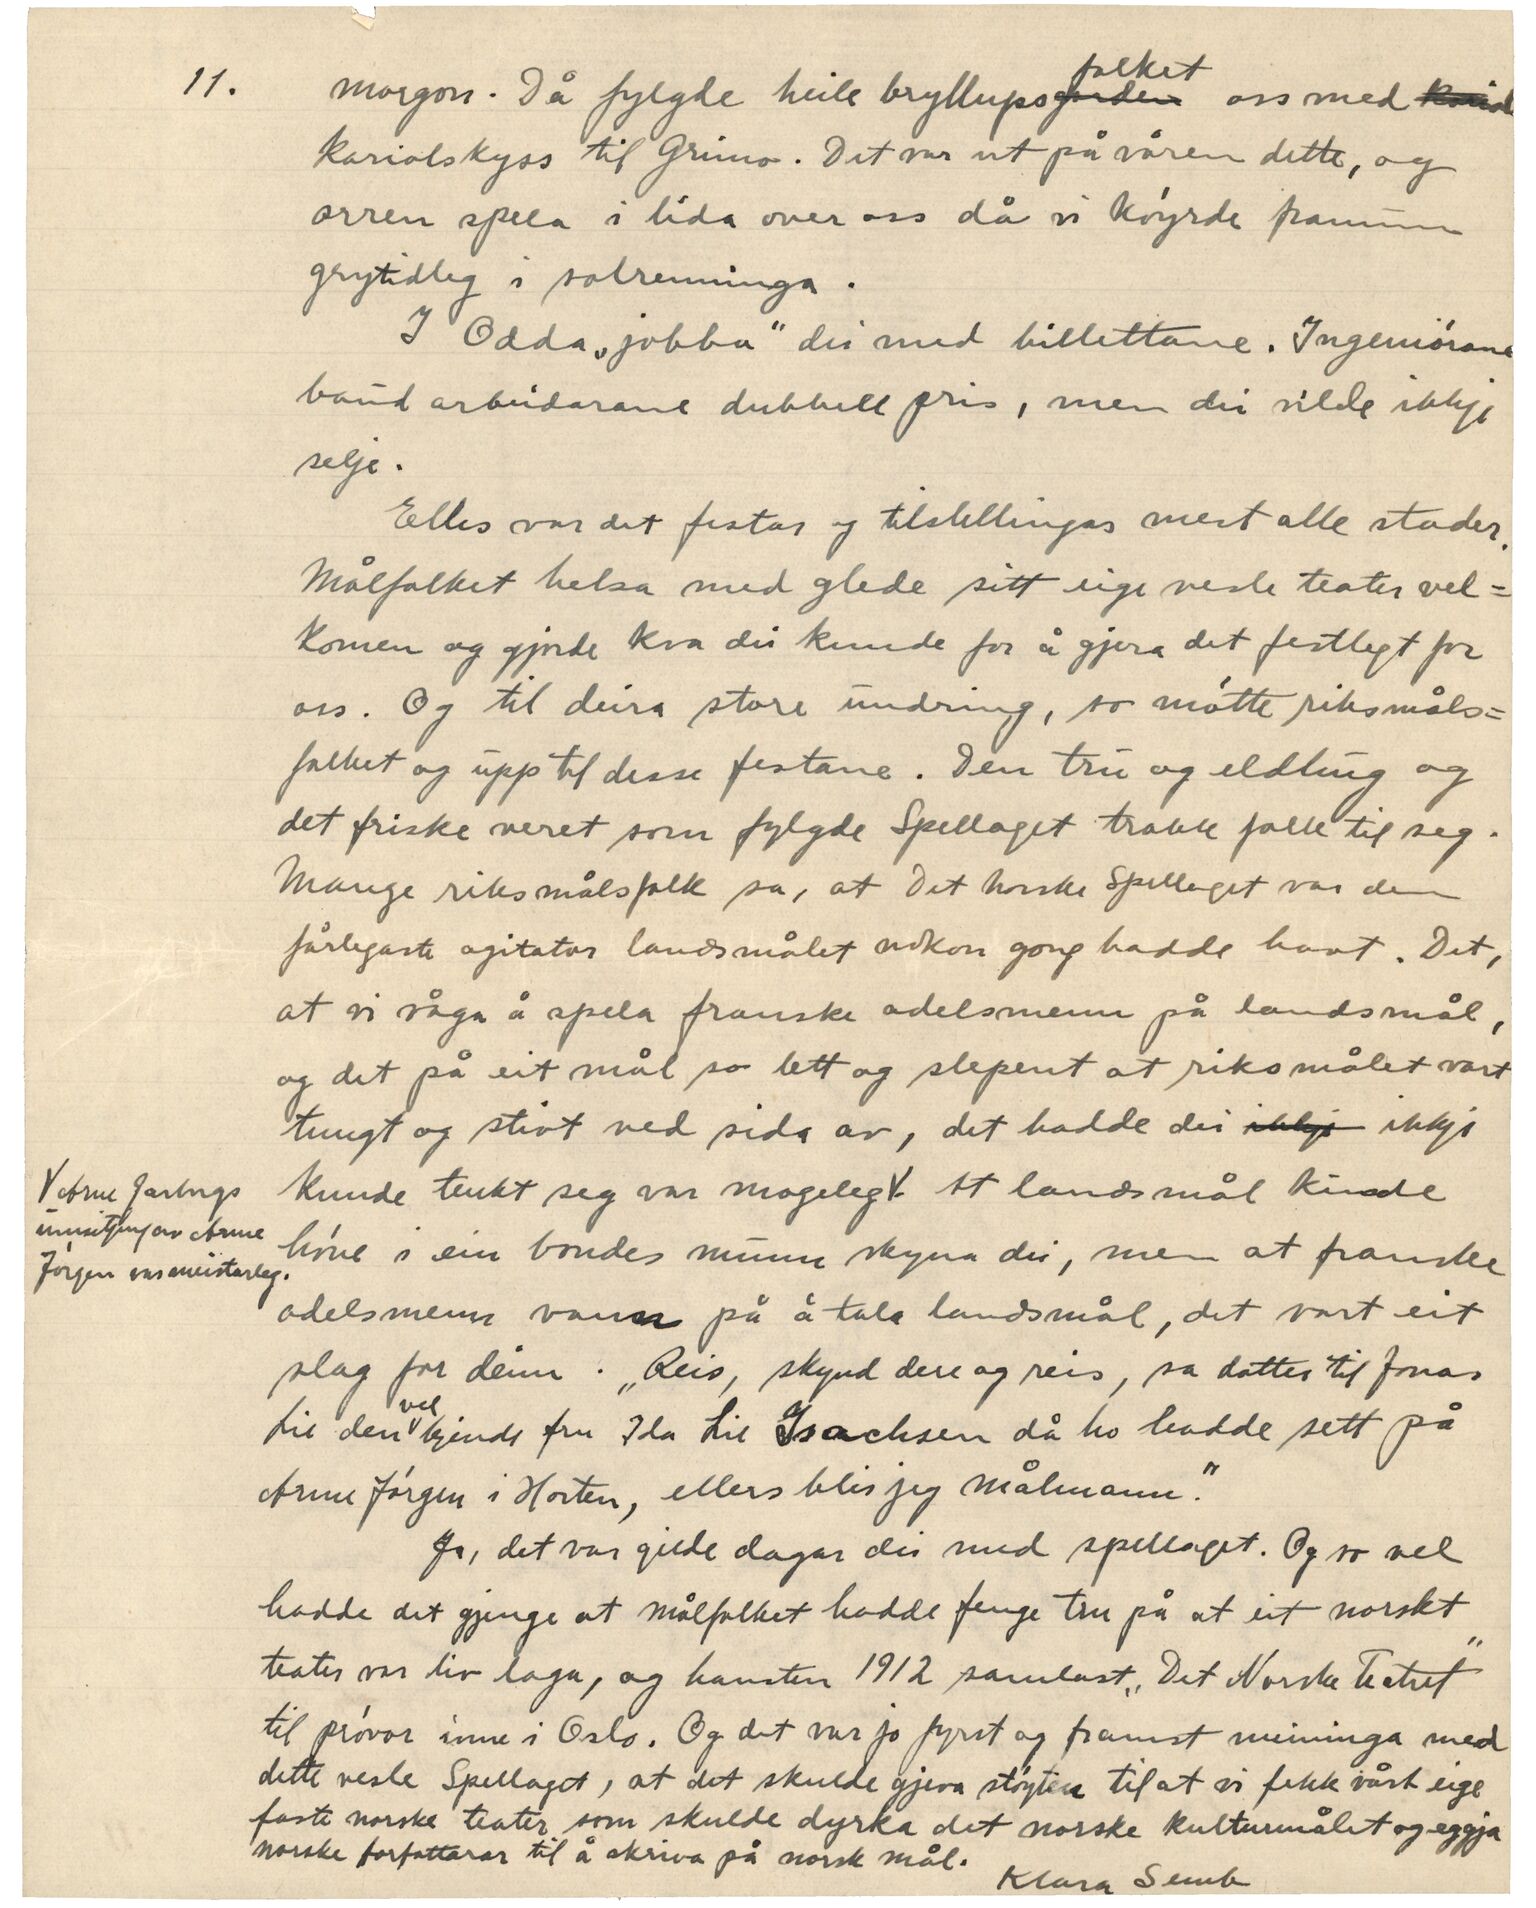 11.
folket
morgon. Då fylgde heile bryllupsgarden oss med
kariolskyss til Grimo. Det var ut på våren dette, og
orren spela i lida over oss då vi köyrde framum
grytidleg i solrenninga.
I Odda „jobba" dei med billettane. Ingeniörane
baud arbeidarane dubbell pris, men dei vilde ikkje
selje.
Elles var det festar og tilstellingar mest alle stader.
Målfolket helsa med glede sitt eige vesle teater vel=
komen og gjorde kva dei kunde for å gjera det festlegt for
oss. Og til deira store undring, so mötte riksmåls=
folket og upp til desse festane. Den tru og eldhug og
det friske veret som fylgde Spellaget trakk folk til seg.
Mange riksmålsfolk sa, at Det norske Spellaget var den
fårlegaste agitator landsmålet nokon gong hadde havt. Det,
at vi våga å spela franske adelsmenn på landsmål,
og det på eit mål so lett og slepent at riksmålet vart
tungt og stivt ved sida av, det hadde dei ikkje ikkje
kunde tenkt seg var mogeleg. At landsmål kunde
V Arne Garborgs
umsetjing av Arme
Jörgen var meistarleg.
höve i ein bondes munn skyna dei, men at franske
adelsmenn vann på å tala landsmål, det vart eit
slag for deim. „Reis, skynd dere og reis, sa dotter til Jonas
vel
Lie den kjende fru Ida Lie Isachsen då ho hadde sett på
Arme Jörgen i Horten, ellers blir jeg målmann."
Ja, det var gilde dagar dei med spellaget. Og so vel
hadde det gjenge at målfolket hadde fenge tru på at eit norskt
teater var liv laga, og hausten 1912 samlast „Det Norske Teatret"
til prövor inne i Oslo. Og det var jo fyrst og framst meininga med
dette vesle Spellaget, at det skulde gjeva stöyten til at vi fekk vårt eige
faste norske teater som skulde dyrka det norske kulturmålet og eggja
norske forfattarar til å skriva på norsk mål.
Klara Semb